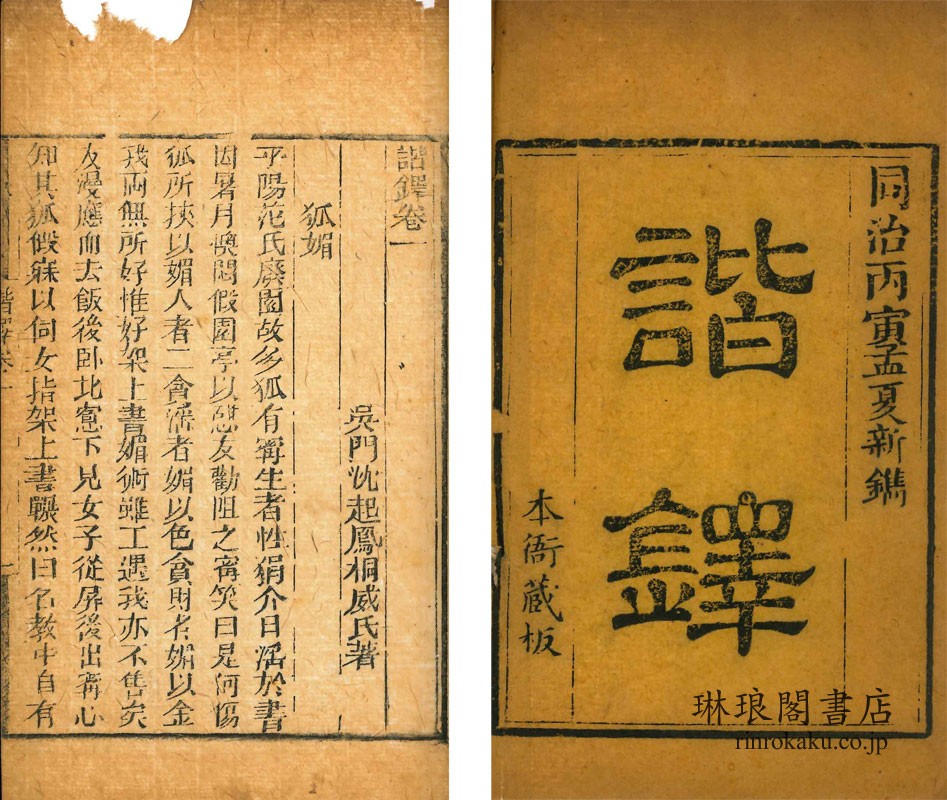 同治丙寅孟夏新鐫
諧鐸
本衙藏板
琳琅閣書店
rinrokaku.co.jp
諧鐸卷一
吳門沈起鳳桐威氏著
狐媚
平陽范氏廢園故多狐有甯生者性狷介日滛於書
因暑月獘悶假園亭以憇友勸阻之甯笑曰是何傷
狐所挾以媚人者二貪滛者媚以色貪財者媚以金
我兩無所好惟好架上書媚術雖工遇我亦不售矣
友漫應而去飯後卧北窻下見女子從屏後出甯心
知其狐假寐以伺女指架上書囅然曰名教中自有